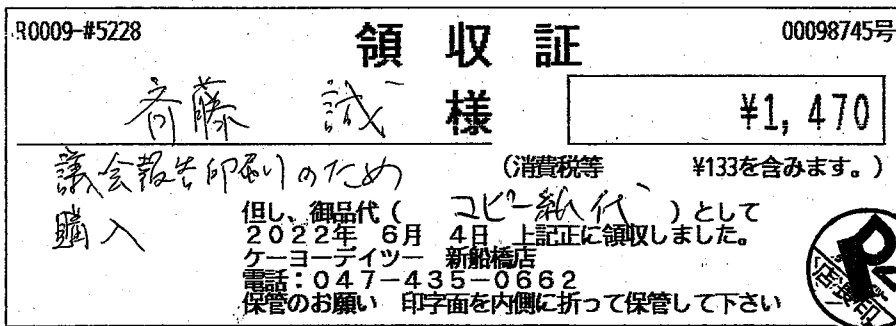 R0009-#5228
領収証
00098745号
斉藤 誠 様
¥1,470
議会報告印刷りのため
(消費税等 ¥133を含みます。)
購入
但し、御品代(コピー紙代)として
2022年 6月 4日 上記正に領収しました。
ケーヨーデイツー 新船橋店
電話:047-435-0662
保管のお願い 印字面を内側に折って保管して下さい